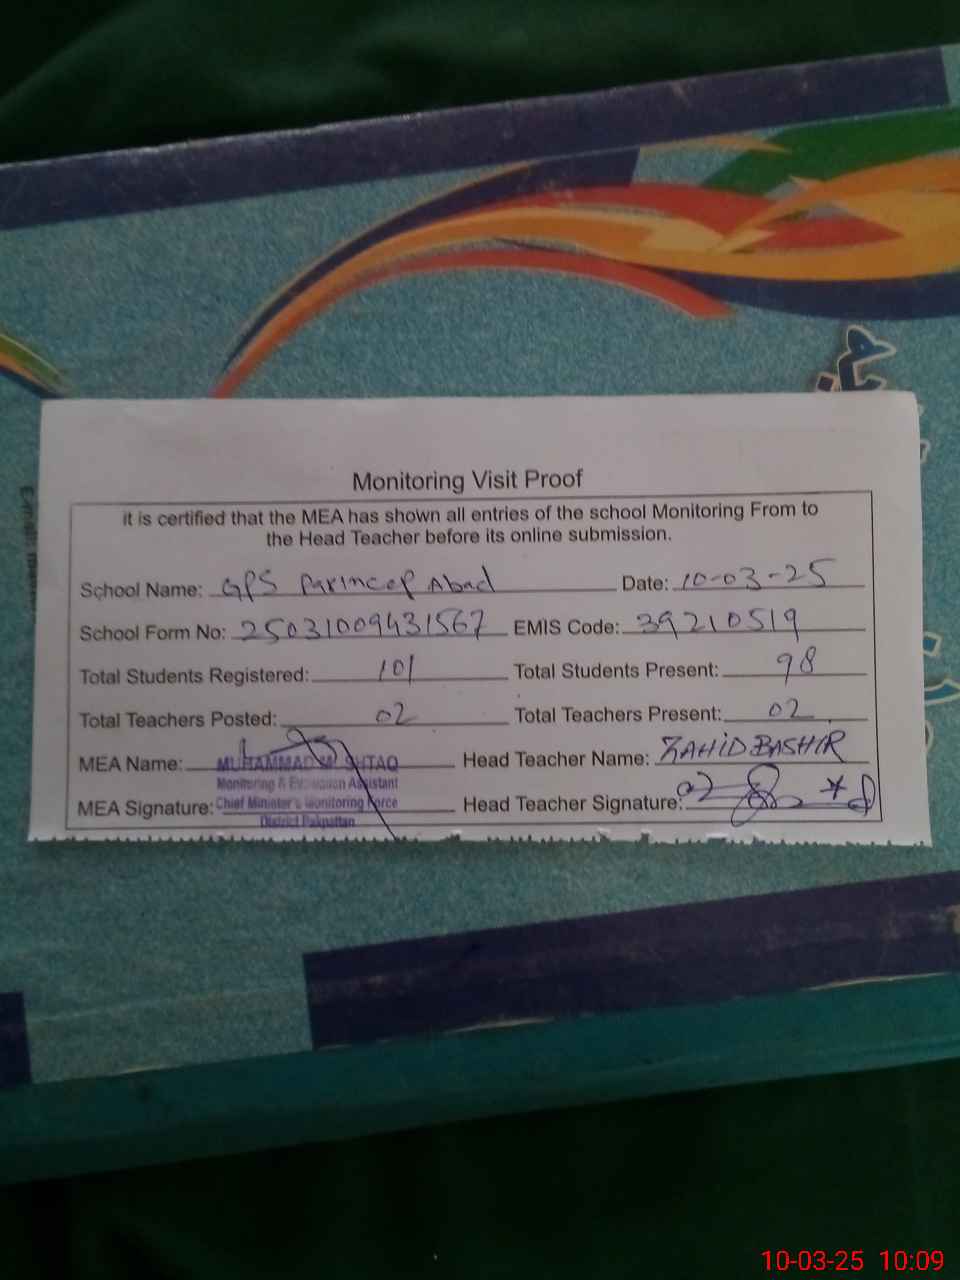 Monitoring Visit Proof
it is certified that the MEA has shown all entries of the school Monitoring From to
the Head Teacher before its online submission.
School Name: GPS Abad Date: 10-03-25
School Form No: 25031009431567 EMIS Code: 39210519
Total Students Registered: 101 Total Students Present: 98
Total Teachers Posted: 02 Total Teachers Present: 02
MEA Name: MUHAMMAD MUSHTAQ Head Teacher Name: ZAHID BASHIR
Monitoring & Evaluation Assistant
MEA Signature: Chief Minister's Monitoring Force Head Teacher Signature:
District Pakpattan
10-03-25 10:09